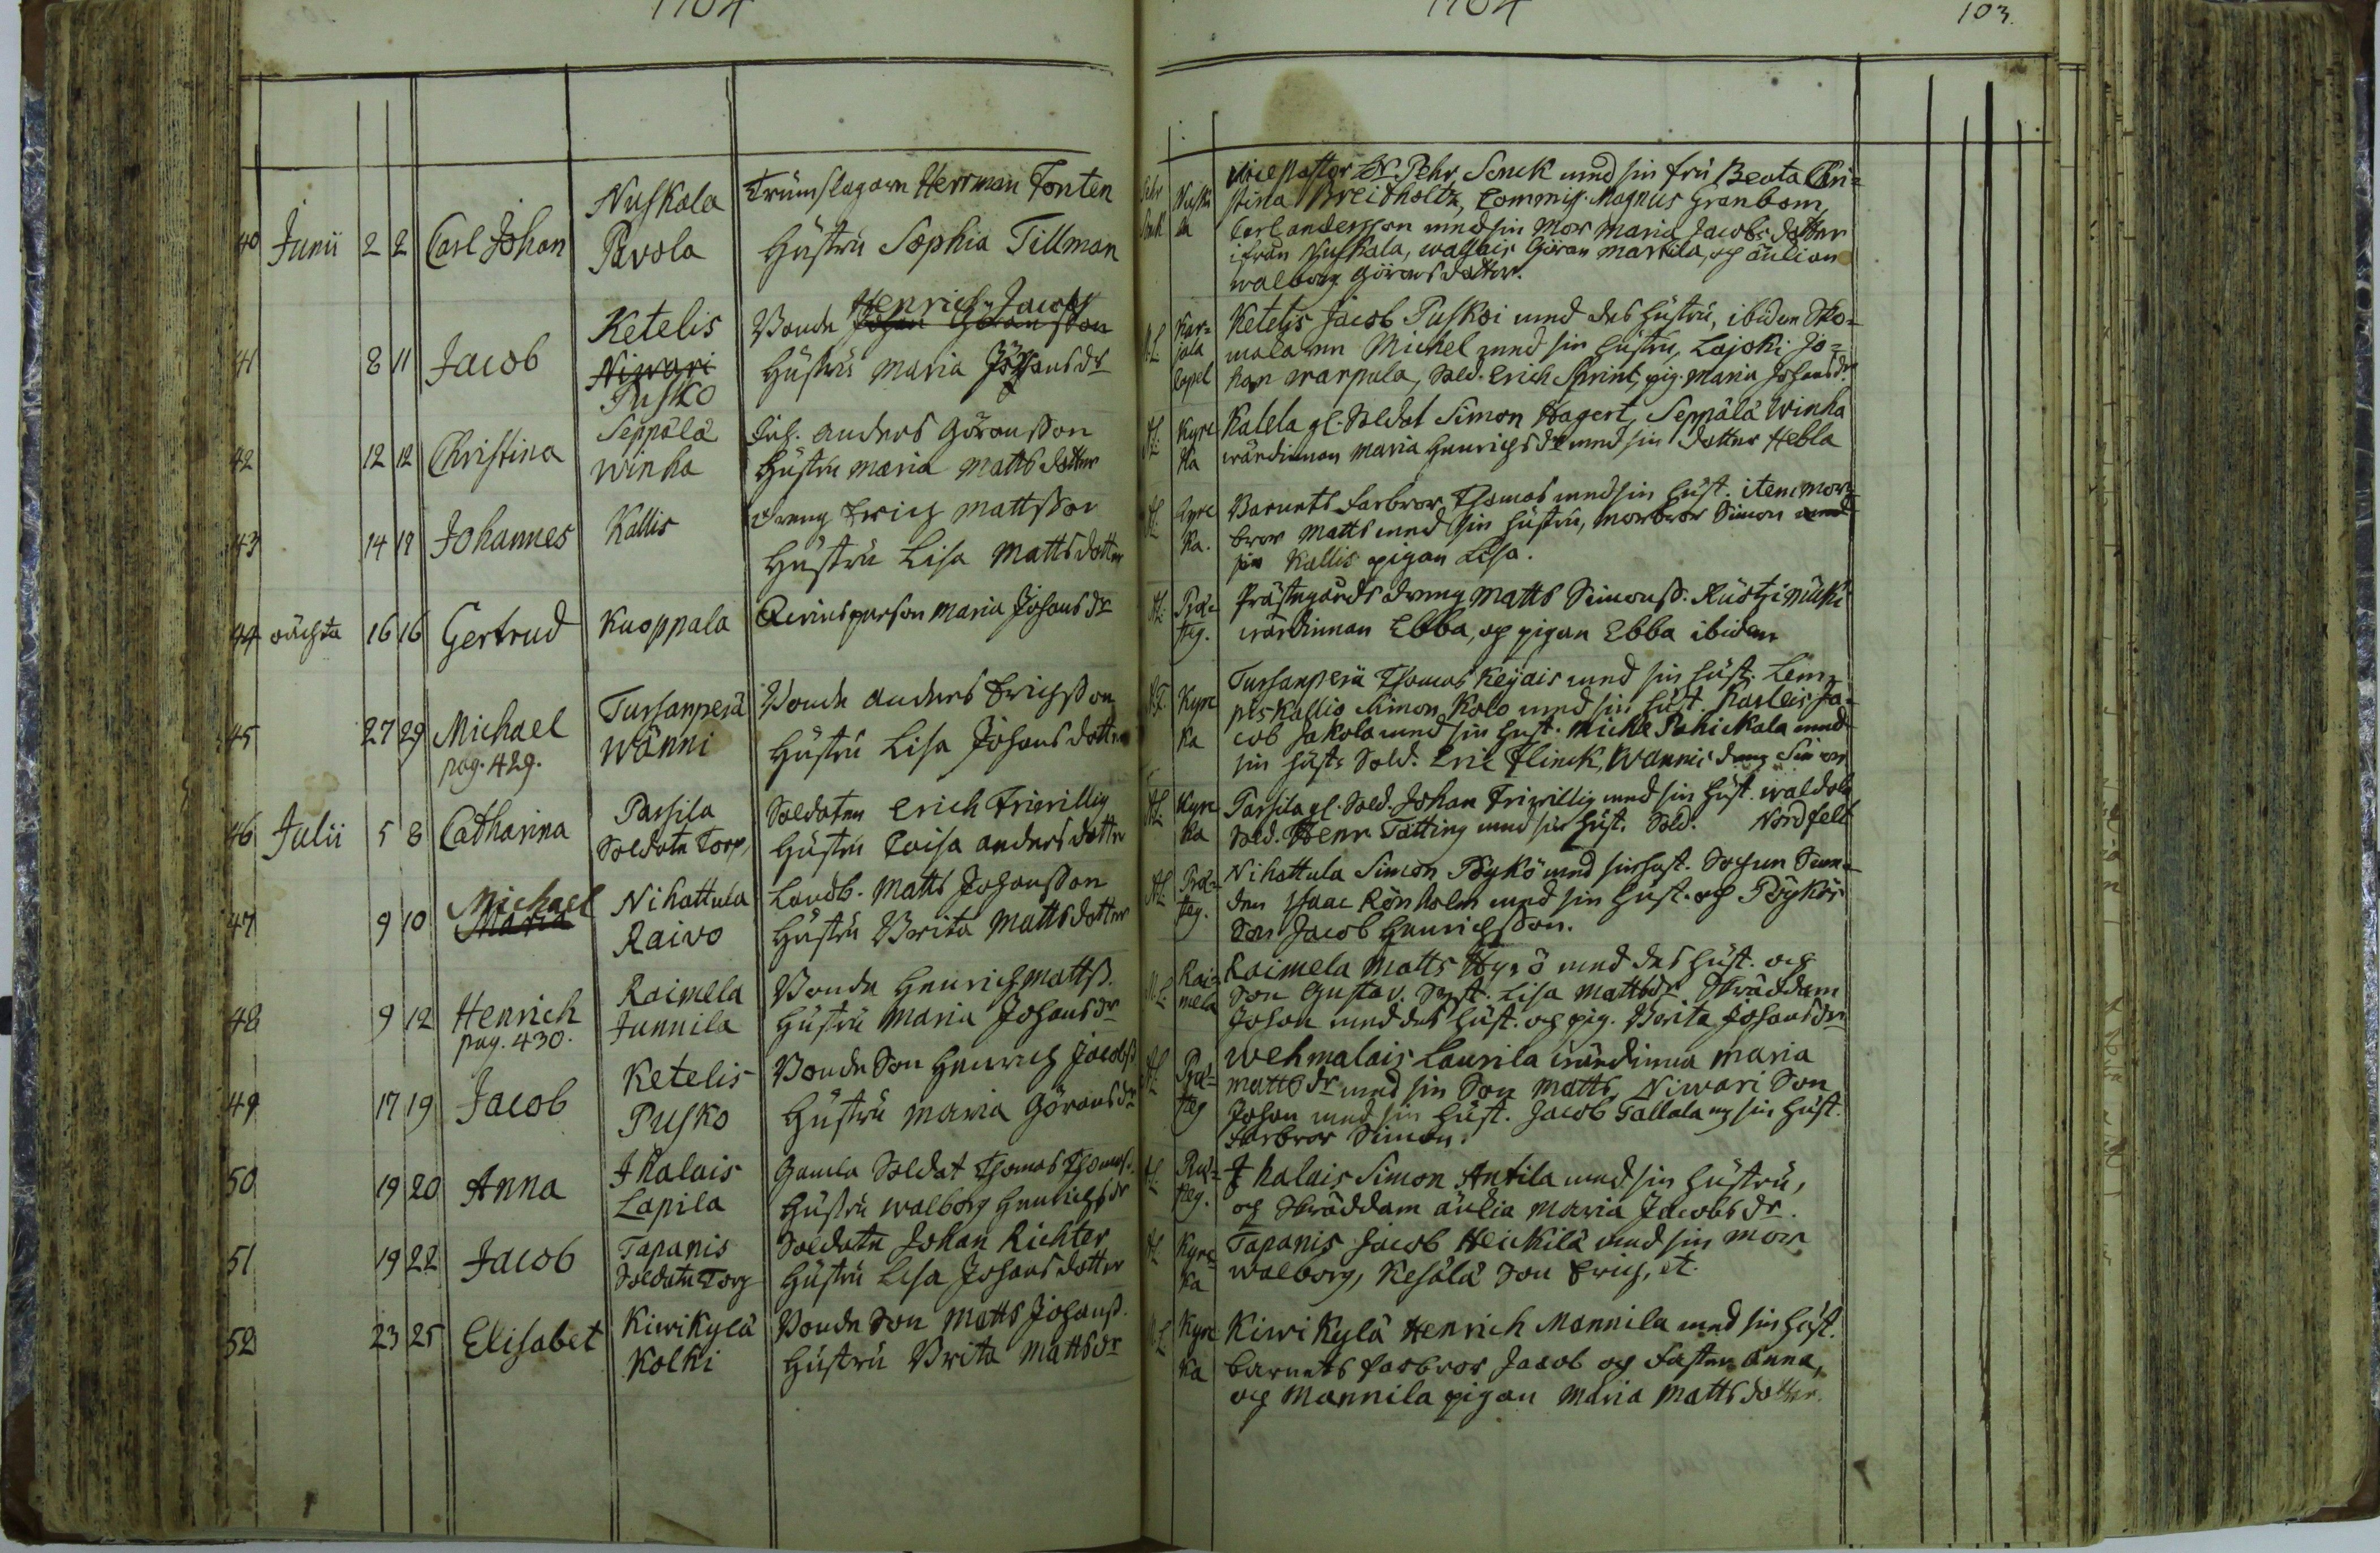 103.
40 Junii 2 2 Carl Johan
Nuskala
Pavola
Trumslagarn Herrman Tonten
Hustru Sophia Tillman
Pehr Senck med sin fru Beata Chri-
stina Breitholtz, Commiss. Magnus Granbom,
Carl andersson med sin Mor Maria Jacobs dotter
ifrån Nuskala, Göran Markila, och
walborg Görans dotter.
41 8 11 Jacob
Ketelis
Niwari
Pusko
Bonde Johan Göransson
Henrich Jacobss
Hustru Maria Johansdr
Kar-
jala
Capel
Ketelis Jacob Puskoi med des hustru, ibidem Sko-
makaren Michel med sin hustru, Lajoki Jo-
han warpula, Sold. Erich Sprint, pig. Maria Johansdr
42 12 12 Christina
Seppälä
Winha
Inh. Anders Göransson
Hustru Maria Matts dotter
Kyrc
ka
Kalela gl. Soldat Simon Hagert, Seppälä Winha
wärdinnan Maria Henrichsdr med sin dotter Hebla
43 14 17 Johannes
Kallis
Dreng Erich Mattsson
Hustru Lisa Mattsdotter
Kyrc
ka.
Barnets farbror Thomas med sin hust. item mor-
bror Matts med sin hustru, morbror Simon med
sin Kallis pigan Lisa.
44 oächta 16 16 Gertrud
Kuoppala
Qvinsperson Maria Johansdr
Præ-
steg.
Prästegårds dreng Matts Simonss. Ruotzinmäki
wärdinnan Ebba, och pigan Ebba ibidem
45 27 29 Michael
pag. 429.
Tursanperä
Wänni
Bonde Anders Erichsson
Hustru Lisa Johansdotter
Kyrc
ka
Tursanperä Thomas Keijais med sin hust. Lem-
pis Kallio Simon Kolo med sin hust. Karleis Ja-
cob Jakola med sin hust. Michl Pahickala med
sin hust. Sold. Eric Flinck, Wännis dreng Simon
46 Julii 5 8 Catharina
Passila
Soldate Torp
Soldaten Erich Friwillig
Hustru Caisa Andersdotter
Kyrc
ka
Passila gl. Sold. Johan Friwillig med sin hust. waldola
Sold. Henr Tötting med sin hust. Sold. Nordfelt
47 9 10 Maria
Michael
Nihattula
Raivo
Landb. Matts Johansson
Hustru Brita Mattsdotter
Præ-
steg.
Nihattula Simon Pöykö med sin hust. Sockne Skrä-
den Isaac Rönholm med sin hust. och Pöykös
Son Jacob Henrichsson.
48 9 12 Henrich
pag. 430.
Raimela
Junnila
Bonde Henrich Mattss.
Hustru Maria Johansdr
Rai-
mela
Raimela Matts Hyrö med des hust. och
Son Gustav. Syst. Lisa Mattsdr. Skräddarn
Johan med des hust. och pig. Brita Johansdr
49 17 19 Jacob
Ketelis
Pusko
Bonde Son Henrich Jacobss
Hustru Maria Göransdr
Præ-
steg
Wehmalais Laurila wärdinna Maria
Mattsdr med sin Son Matts, Niwari Son
Johan med sin hust. Jacob Tallala m sin hust.
Farbror Simon.
50 19 20 Anna
Ihalais
Lapila
Gamla Soldat Thomas Thomass.
Hustru Walborg Henrichsdr
Præ-
steg.
Ihalais Simon Antila med sin hustru,
och Skräddarn änkia Maria Jacobsdr.
51 19 22 Jacob
Tapanis
Soldate Torp
Soldate Johan Richter
Hustru Lisa Johansdotter
Kyrc
ka
Tapanis Jacob Heickilä med sin mor
walborg, Kesälä Son Erich, et.
52 23 25 Elisabet
Kiwikylä
Kolki
Bonde Son Matts Johanss.
Hustru Brita Mattsdr
Kyrc
ka
Kiwikylä Henrich Mannila med sin hust.
barnets farbror Jacob och Faster Anna,
och Mannila pigan Maria Mattsdotter.